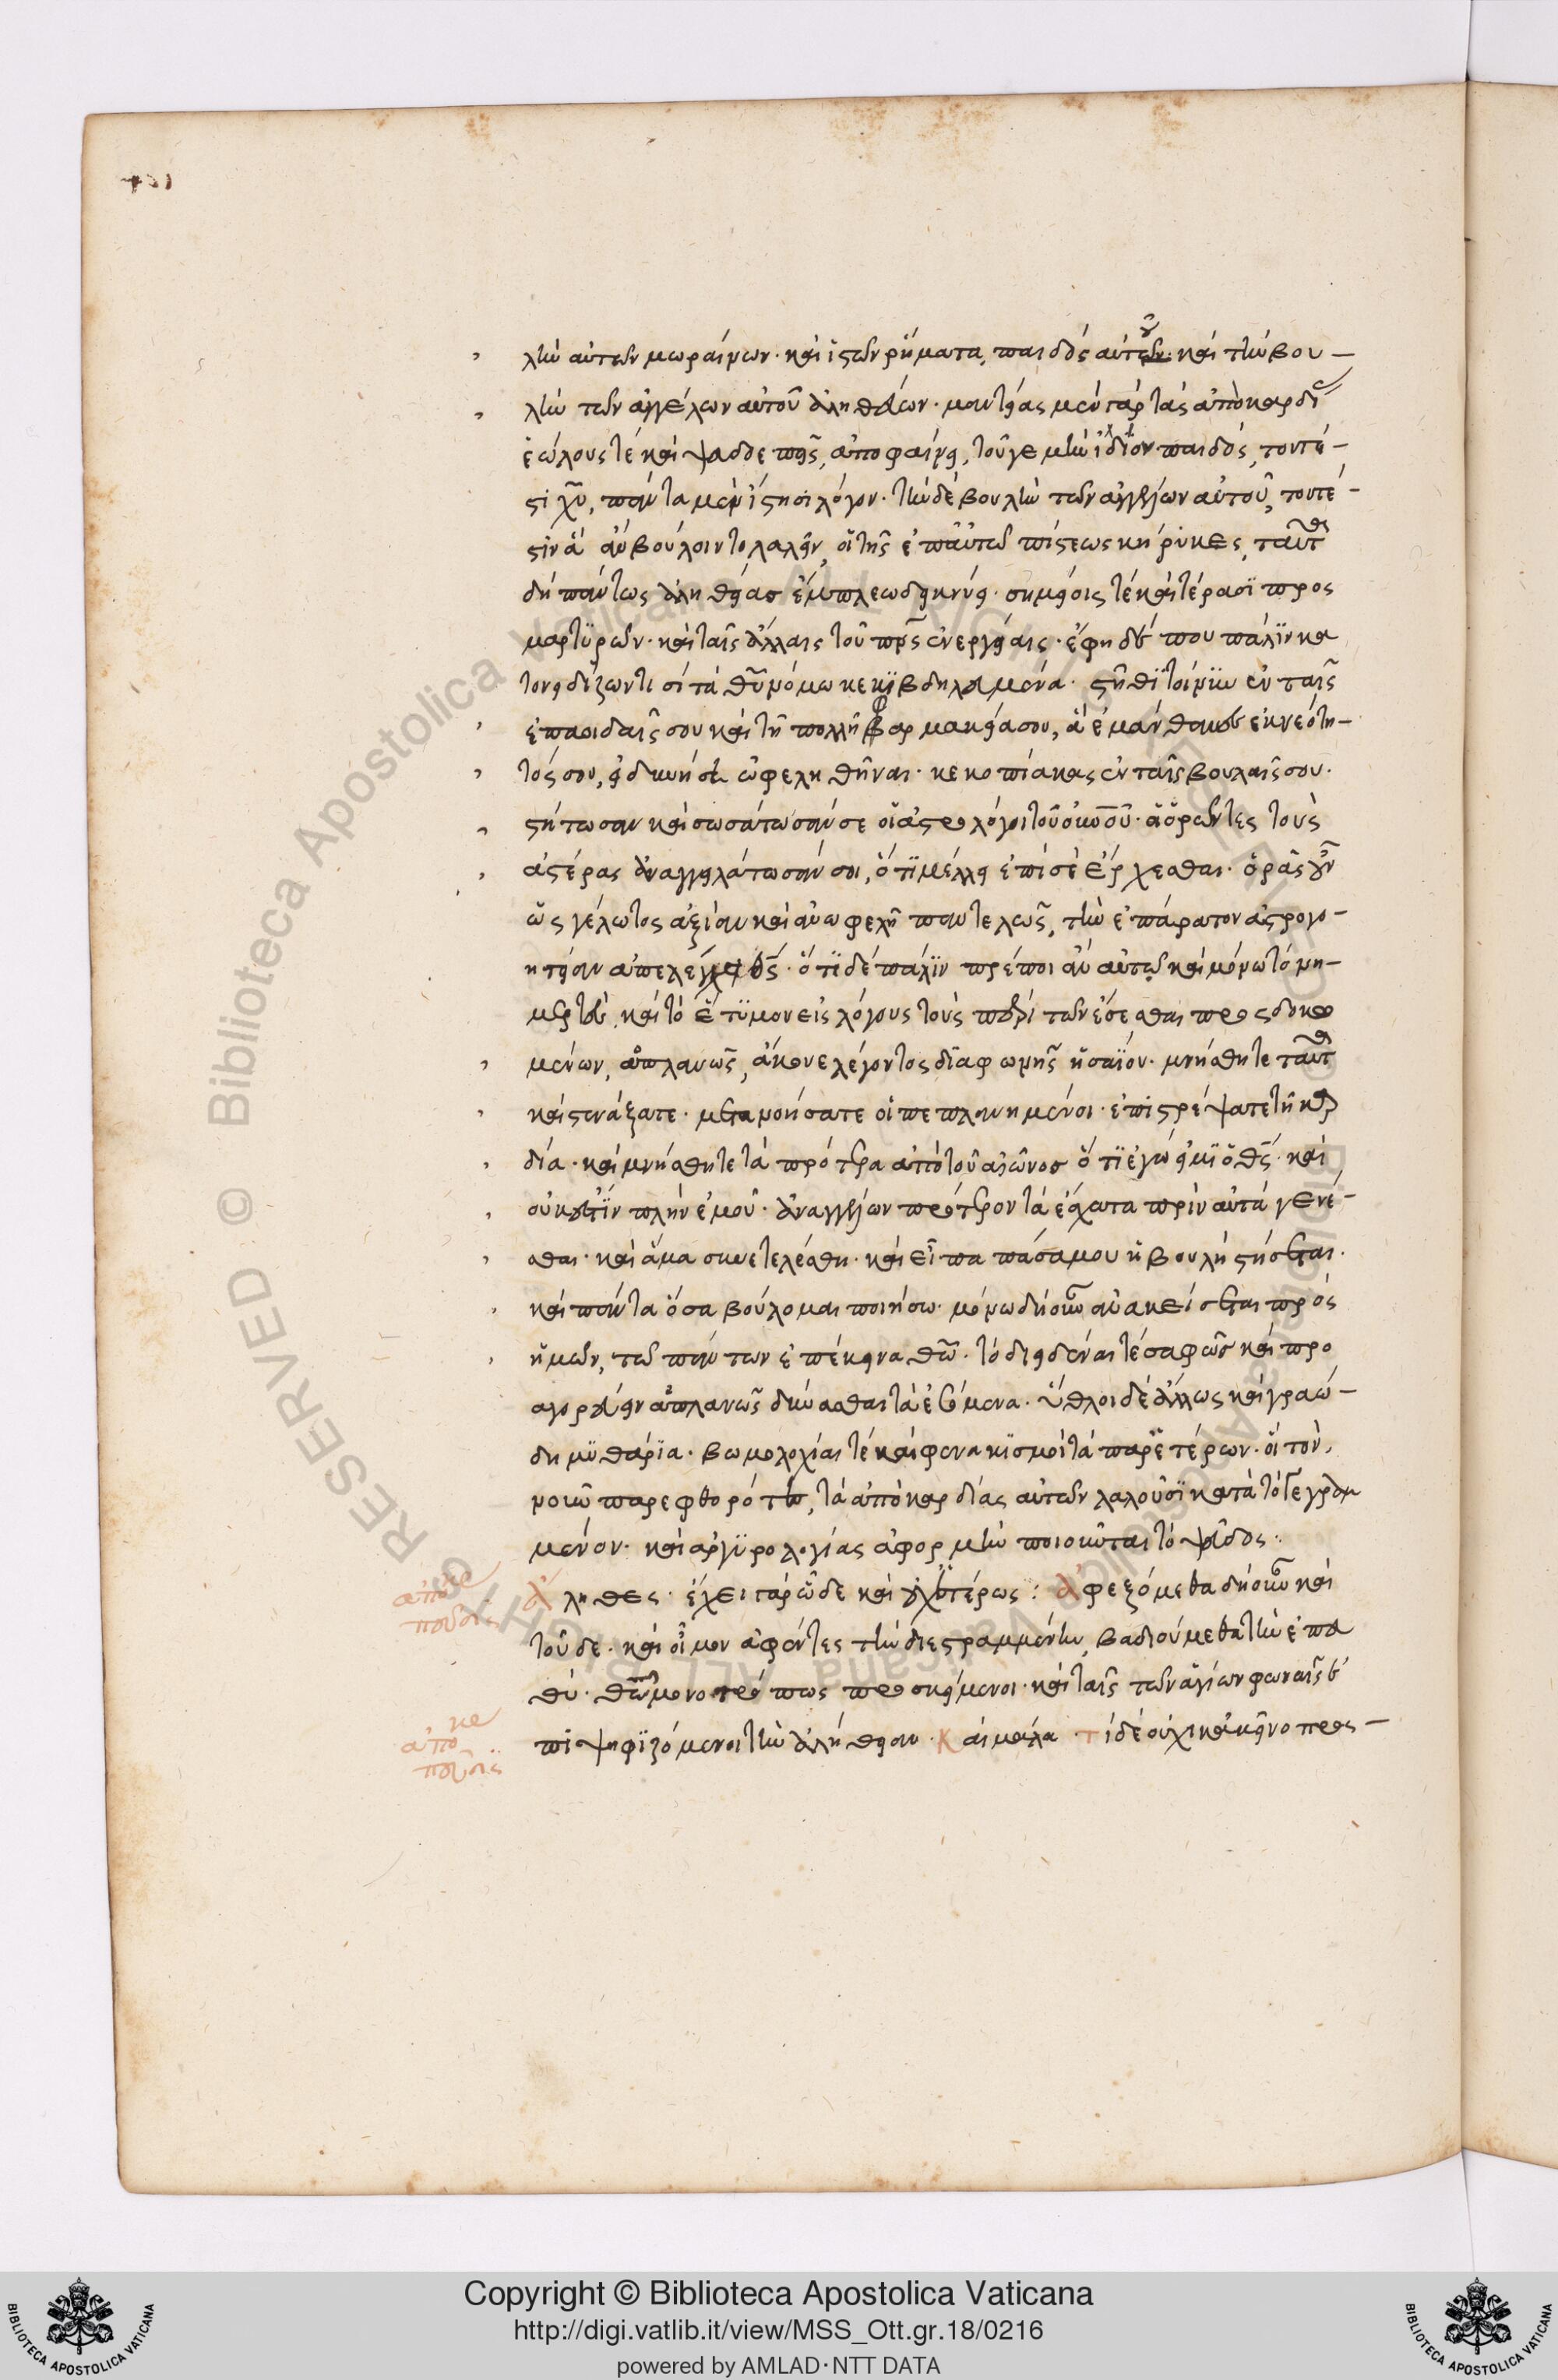 λὴν αὐτῶν μωραίνων· καὶ ἱστῶν ῥήματα παιδὸς αὐτοῦ· καὶ τὴν βου-
λὴν τῶν ἀγγέλων αὐτοῦ ἀληθεύων· μαντείας μὲν γὰρ τὰς ἀπὸ καρδίας
ἑώλους τὲ καὶ ψευδοεπεῖς, ἀποφαίνει, τοῦ γε μὴν ἰδίου παιδὸς, τουτέ-
στι χῦ, πάντα μὲν ἵστησι λόγον· τὴν δὲ βουλὴν τῶν ἀγγέλων αὐτοῦ, τουτέ-
στιν ἃ ἂν βούλοιντο λαλεῖν, οἱ τῆς ἐπ' αὐτῷ πίστεως κήρυκες, ταύτην
δὴ πάντως ἀληθείας ἔμπλεω δεικνύει· σημείοις τὲ καὶ τέρασι προς
μαρτυρῶν· καὶ ταῖς ἄλλαις τοῦ πνς ἐνεργείαις· ἔφη δέ που πάλιν κα
τονειδίζων τισὶ τὰ θυμόμω κεκιβδηλευμένα· στῆθι τοίνυν ἐν ταῖς
ἐπαοιδαῖς σου καὶ τῇ πολλῇ φαρμακείᾳ σου, ἃ ἐμάνθανες ἐκ νεότη-
τός σου, εἰ δυνήσει ὠφεληθῆναι· κεκοπίακας ἐν ταῖς βουλαῖς σου·
στήτωσαν καὶ σωσάτωσάν σε οἱ ἀστρολόγοι τοῦ οὐνοῦ· οἱ ὁρῶντες τοὺς
ἀστέρας ἀναγγειλάτωσάν σοι, ὅτι μέλλει ἐπὶ σὲ ἔρχεσθαι· ὁρᾷς οὖν
ὡς γέλωτος ἀξίαν καὶ ἀνωφελῆ παντελῶς, τὴν ἐπάρατον ἀστρογο-
ητείαν ἀπελέγχει θς· ὅτι δὲ πάλιν πρέποι ἂν αὐτῷ καὶ μόνῳ τὸ νη-
μερτὲς, καὶ τὸ ἔτυμον εἰς λόγους τοὺς περὶ τῶν ἔσεσθαι προσδοκω
μένων, ἀπλανῶς, ἄκουε λέγοντος διαφωνῆς ἡσαΐου· μνήσθητε ταῦτα
καὶ στενάξατε· μετανοήσατε οἱ πεπλανημένοι· ἐπιστρέψατε τῇ καρ
δία· καὶ μνήσθητε τὰ πρότερα ἀπὸ τοῦ αἰῶνος ὅτι ἐγώ εἰμι ὁ θς· καὶ
οὐκ ἔστιν πλὴν ἐμοῦ· ἀναγγέλλων πρότερον τὰ ἔσχατα πρὶν αὐτὰ γενέ-
σθαι· καὶ ἅμα συνετελέσθη· καὶ εἶπα πᾶσα μου ἡ βουλὴ στήσεται·
καὶ πάντα ὅσα βούλομαι ποιήσω· μόνῳ δὴ οὖν ἀνακείσεται πρὸς
ἡμῶν, τῷ πάντων ἐπέκεινα θῶ· τὸ διειδέναι τὲ σαφῶς καὶ προ
αγορεύειν ἀπλανῶς δύνασθαι τὰ ἐσόμενα· ὕθλοι δὲ ἄλλως καὶ γραώ-
δη μυθάρια· βωμολοχίαι τὲ καὶ φενακισμοὶ τὰ παρ' ἑτέρων· οἳ τὸν
νοῦν παρεφθορότες, τὰ ἀπὸ καρδίας αὐτῶν λαλοῦσι κατὰ τὸ γεγραμ
μένον· καὶ ἀργυρολογίας ἀφορμὴν ποιοῦνται τὸ ψεῦδος·
ἀληθες· ἔχει γὰρ ὧδε καὶ οὐχ ἑτέρως: ἀφεξόμεθα δὴ οὖν καὶ
τοῦδε· καὶ οἷμον ἀφέντες τὴν διεστραμμένην, βαδιούμεθα τὴν ἐπ' εὐ
θύ· θῶ μονοτρόπως προσκείμενοι· καὶ ταῖς τῶν ἁγίων φωναῖς ἐ
πιψηφιζόμενοι τὴν ἀλήθειαν· Καὶ μάλα· τί δὲ οὐχὶ κἀκεῖνο προς-